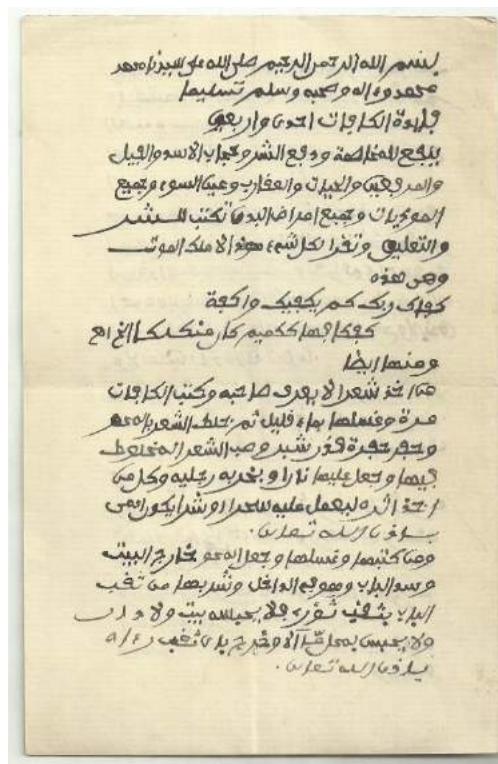 بسم الله الرحمن الرحيم صلى الله على سيدنا محمد
محمد وءاله وصحبه وسلم تسليما
فايدة الكافات احدى واربعين
ينفع للمخاصمة ودفع الشر وحجاب الاسد والفيل
والحيات والعقارب وعين السوء وجميع
الموذيات وجميع امراض البدن تكتب للنشر
والتعليق وتقرا لكل شيء هذا الا ملك الموت
وهي هذه
كفاك ربك كم يكفيك واكفة
كفكافها ككمين كان
ومنها ايضا
من اخذ شعر الا يعرف صاحبه وكتب الكافات
مرة وغسلها بماء قليل ثم خلط الشعر بالمحو
وحفر حفرة قدر شبر وصب الشعر المخلوط
فيها وجعل عليها نارا وكل من
اخذ اثره ليعمل عليه سحرا او شرا يكون اعمى
باذن الله تعالى
ومن كتبها وغسلها وجعل المحو خارج البيت
وسد الباب وهو في الداخل وشربها من ثقب
الباب فلا يحبسه بيت ولا دار
ولا يحبس بمحل الا وخرج
باذن الله تعالى